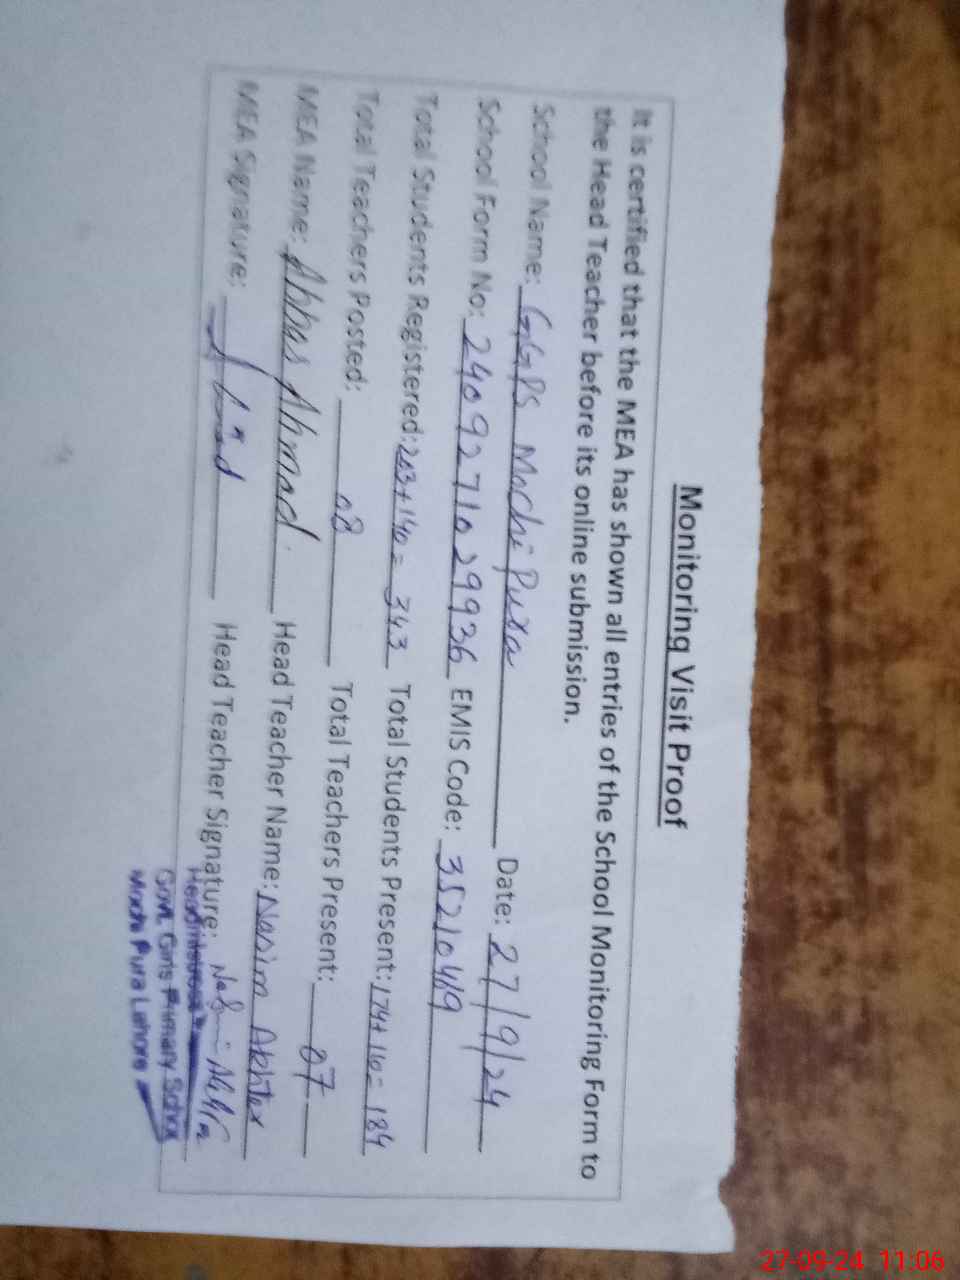 Monitoring Visit Proof
It is certified that the MEA has shown all entries of the School Monitoring Form to
the Head Teacher before its online submission.
School Name: GGPS Mochi Pura Date: 27/9/24
School Form No: 2409271029936 EMIS Code: 35210419
Total Students Registered: 203+140= 343 Total Students Present: 174+10= 184
Total Teachers Posted: 08 Total Teachers Present: 07
MEA Name: Abbas Ahmad. Head Teacher Name: Nasim Akhter
MEA Signature: Head Teacher Signature:
Headmistress
Govt. Girls Primary School
Mochi Pura Lahore
27-09-24 11:06